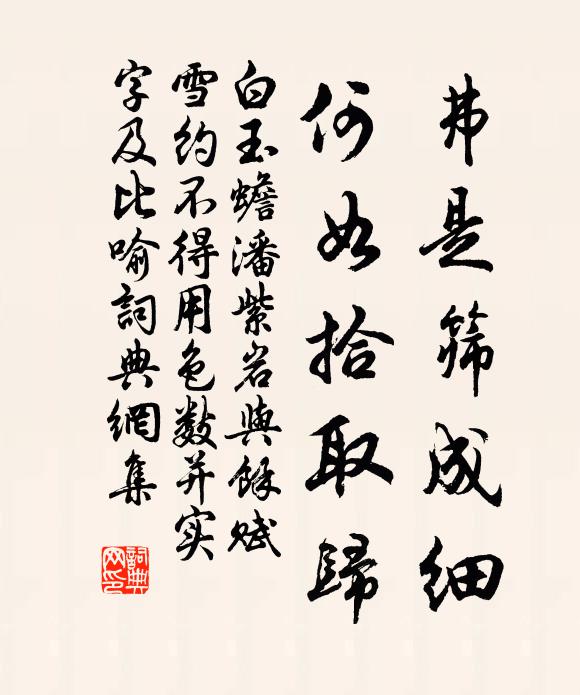 弗是筛成细
何如拾取歸
白玉蟾潘紫岩與餘赋
雪约不得用色数并实
字及比喻詞典網集
詞典网印